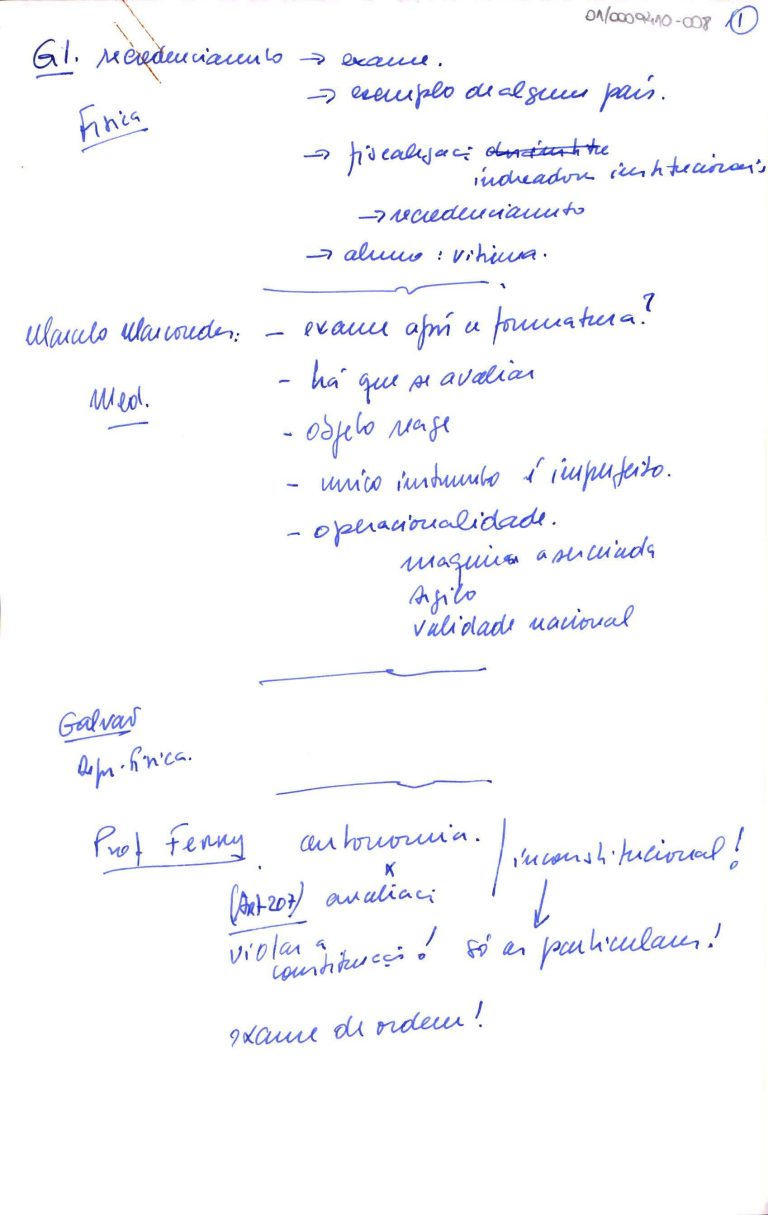 01/0009410-008 1
G1. recredenciamento → exame.
→ exemplo de algum país.
Física
→ fiscalizaçã
indicadores institucionais
→ recredenciamento
→ aluno : vítima.
Marcelo Marcondes: - exame após a formatura?
- há que se avaliar
Med.
- objeto reage
- unico instrumento é imperfeito.
- operacionalidade.
maquina a ser criada
sigilo
validade nacional
Galvaõ
Física.
Prof Ferry autonomia. / inconstitucional!
x
(Art-207) avaliaçã ↓
violar a constituição! só as particulares!
exame de ordem!